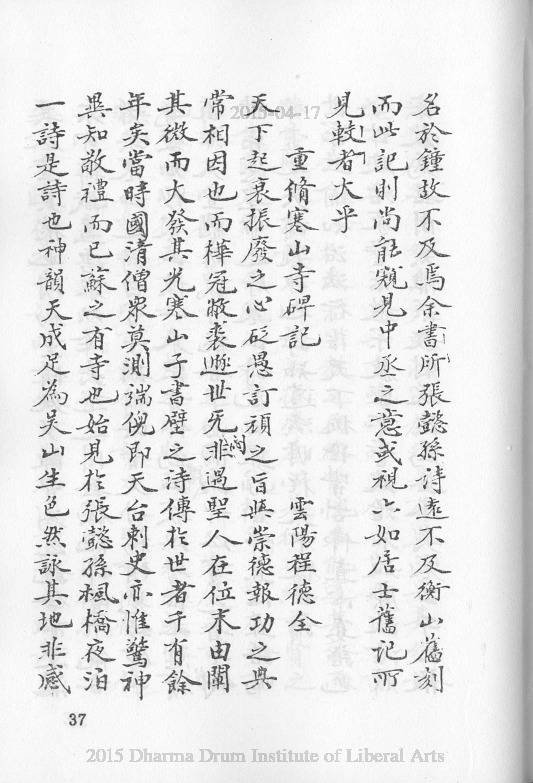 名於鐘故不及焉余書所張懿孫詩遠不及衡山舊刻
而此記則尚能窺見中丞之意或視六如居士舊記所
見較者大乎
重脩寒山寺碑記 雲陽程德全
天下起衰振廢之心砭愚訂頑之旨與崇德報功之典
常相因也而樺冠敝裘遯世无悶非遇聖人在位末由闡
其微而大發其光寒山子書壁之詩傳於世者千有餘
年矣當時國清僧眾莫測端倪即天台刺史亦惟驚神
異知敬禮而已蘇之有寺也始見於張懿孫楓橋夜泊
一詩是詩也神韻天成足為吳山生色然詠其地非感
37
2015-04-17
2015 Dharma Drum Institute of Liberal Arts